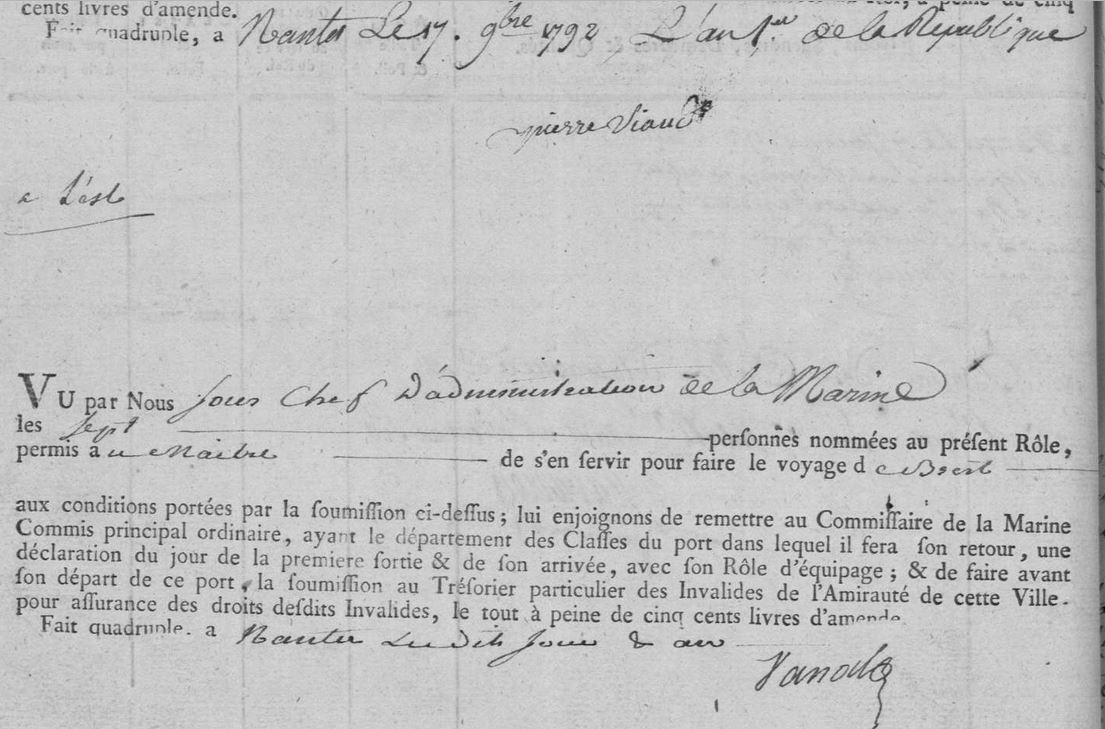 cents livres d'amende.
Fait quadruple, a Nantes Le 17. 9bre 1792 L'an 1er de la Republique
pierre Viaud
a L'est
VU par Nous sous Chef D'administration de la Marine
les sept personnes nommées au préſent Rôle,
permis a u Maitre de s'en ſervir pour faire le voyage d e Brest
aux conditions portées par la ſoumiſſion ci-deſſus; lui enjoignons de remettre au Commiſſaire de la Marine
Commis principal ordinaire, ayant le département des Claſſes du port dans lequel il fera ſon retour, une
déclaration du jour de la premiere ſortie & de ſon arrivée, avec ſon Rôle d'équipage; & de faire avant
ſon départ de ce port, la ſoumiſſion au Tréſorier particulier des Invalides de l'Amirauté de cette Ville.
pour aſſurance des droits deſdits Invalides, le tout à peine de cinq cents livres d'amende.
Fait quadruple. a Nantes Lesdits Jour & an